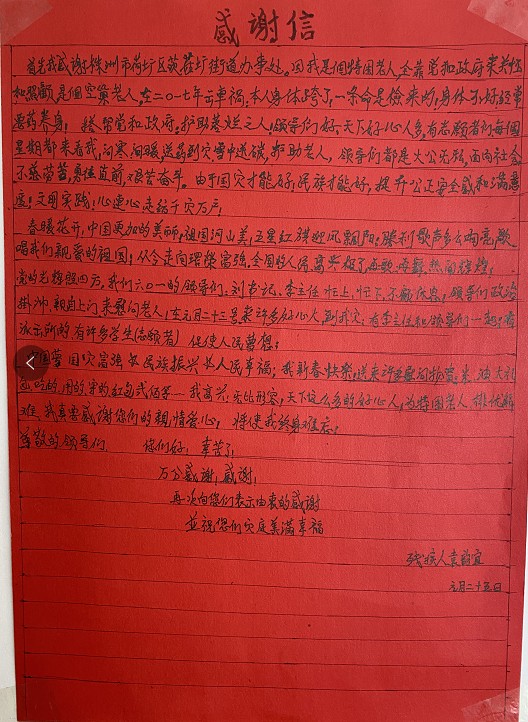 感谢信
首先我感谢株洲市荷圩区茨菇圩街道办事处。因我是個特困老人全靠党和政府来关怀
和照顧是個空巢老人。在二〇一七年云車禍。本人身体跨了,一条命是俭来的,身体不好経常
要药养身,
党和政府。护助孤姓之人,領导们好。天下好心人多。有志願者们每個
星期都来看我,问寒问暖送药到家雪中送碳,护助老人,領导们都是大公无私,面向社会
不
苦,勇往直前,艰苦奋斗。由于国家才能好,民族才能好,提升公正安全感和满意
度,文明实践,心連心走訪千家万户,
春暖花开,中国更加的美丽,祖国河山美,五星红旗迎风飘阳,勝利歌声多么响亮,歌
唱我们親爱的祖国,从今走向
富强。全国的人
高兴
党的光輝照四方,我们六〇一的領导们,刘書记、李主任忙上,忙下,不顧休息,領导们
掛帅,親自上门来慰问老人,在元月二十三号来许多好心人到我家,有李主任和領导们一起,有
派出所的,有许多学生(志願者) 促使人民
想,
国家富强
民族振兴
人民幸福,我新春快樂,送来许多慰问物资米油大礼
包吃的用的
的红包弍佰
我高兴,无比形容,天下这么多的好心人,为特困老人排忧解
难我真要感謝您们的親情爱心,将使我终身难忘,
尊敬的領导们 您们好,辛苦了,
万分感謝,感謝,
再次向您们表示由衷的感谢
並祝您们家庭美满幸福
残疾人袁
宜
元月二十五日